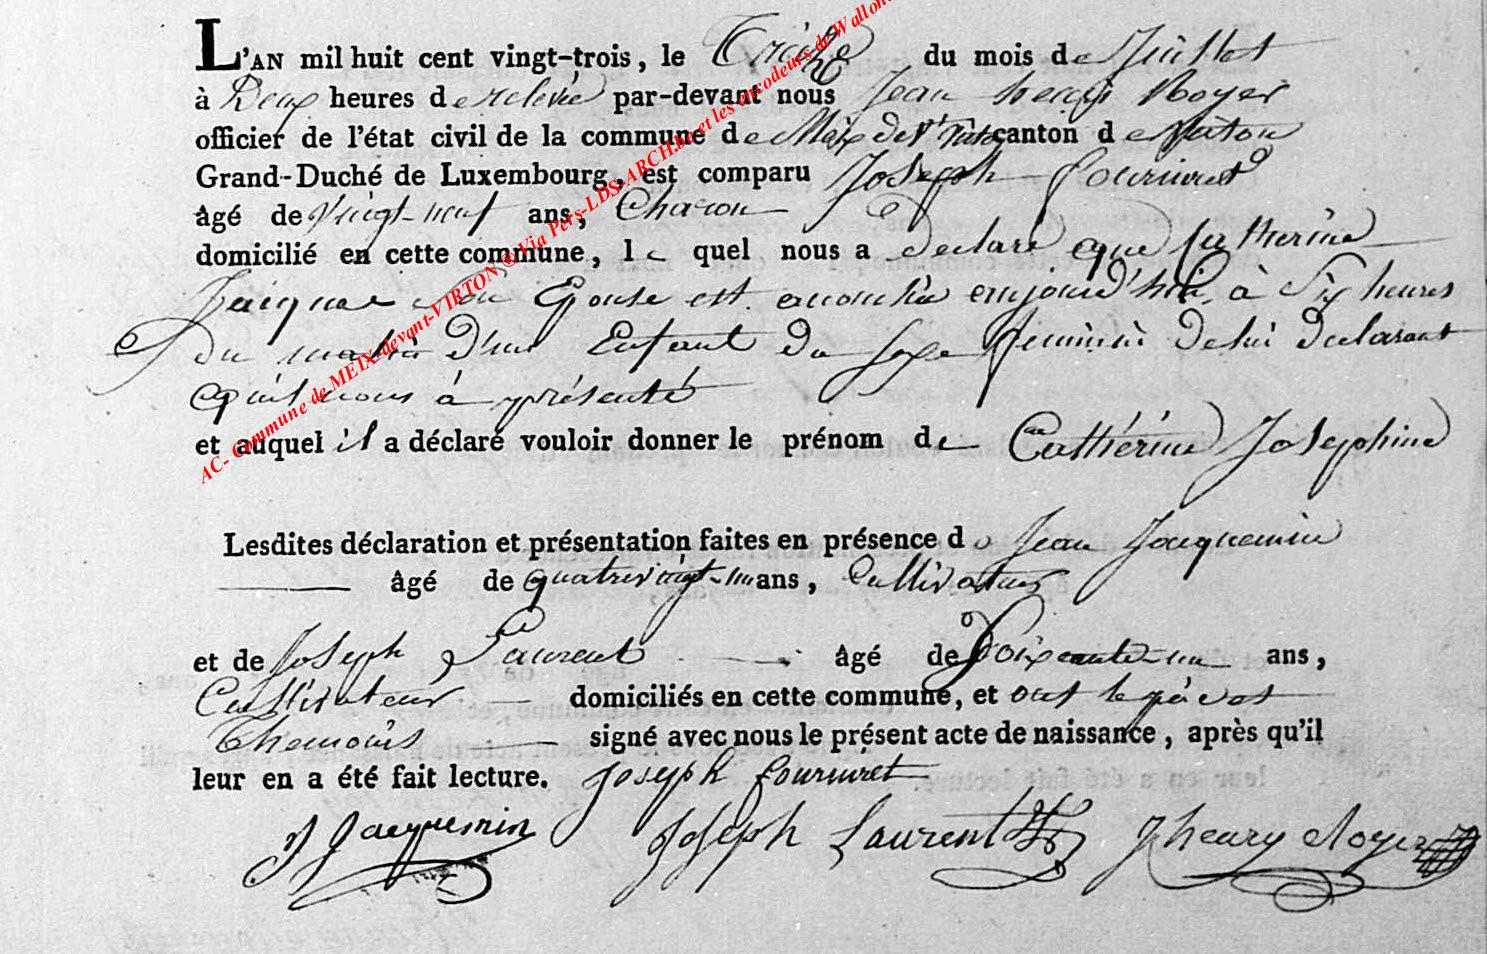 L'AN mil huit cent vingt-trois, le Treize du mois de Juillet
à Deux heures de relevée par-devant nous Jean henry Noyer
officier de l'état civil de la commune de Meix dt Virton canton de Virton
Grand-Duché de Luxembourg, est comparu Joseph
âgé de Vingt-neuf ans, Charon
domicilié en cette commune, le quel nous a declaré que Catherine
son Epouse est accouchée aujourd'hui, à Six heures
Du matin d'un Enfant du sexe feminin de lui declarant
qu'il nous à présenté
et auquel il a déclaré vouloir donner le prénom de Cathérine Josephine
Lesdites déclaration et présentation faites en présence de Jean Jacquemin
âgé de quatrevingt-un ans, Cultivateur
et de Joseph Laurent âgé de Soixante-un ans,
Cultivateur domiciliés en cette commune, et ont le père et
Themoins signé avec nous le présent acte de naissance, après qu'il
leur en a été fait lecture. Joseph
J Jacquemin Joseph Laurent J henry Noyer
AC- Commune de MEIX-devant-VIRTON ® Via Pers-LDS-ARCH.be et les encodeurs de Wallon